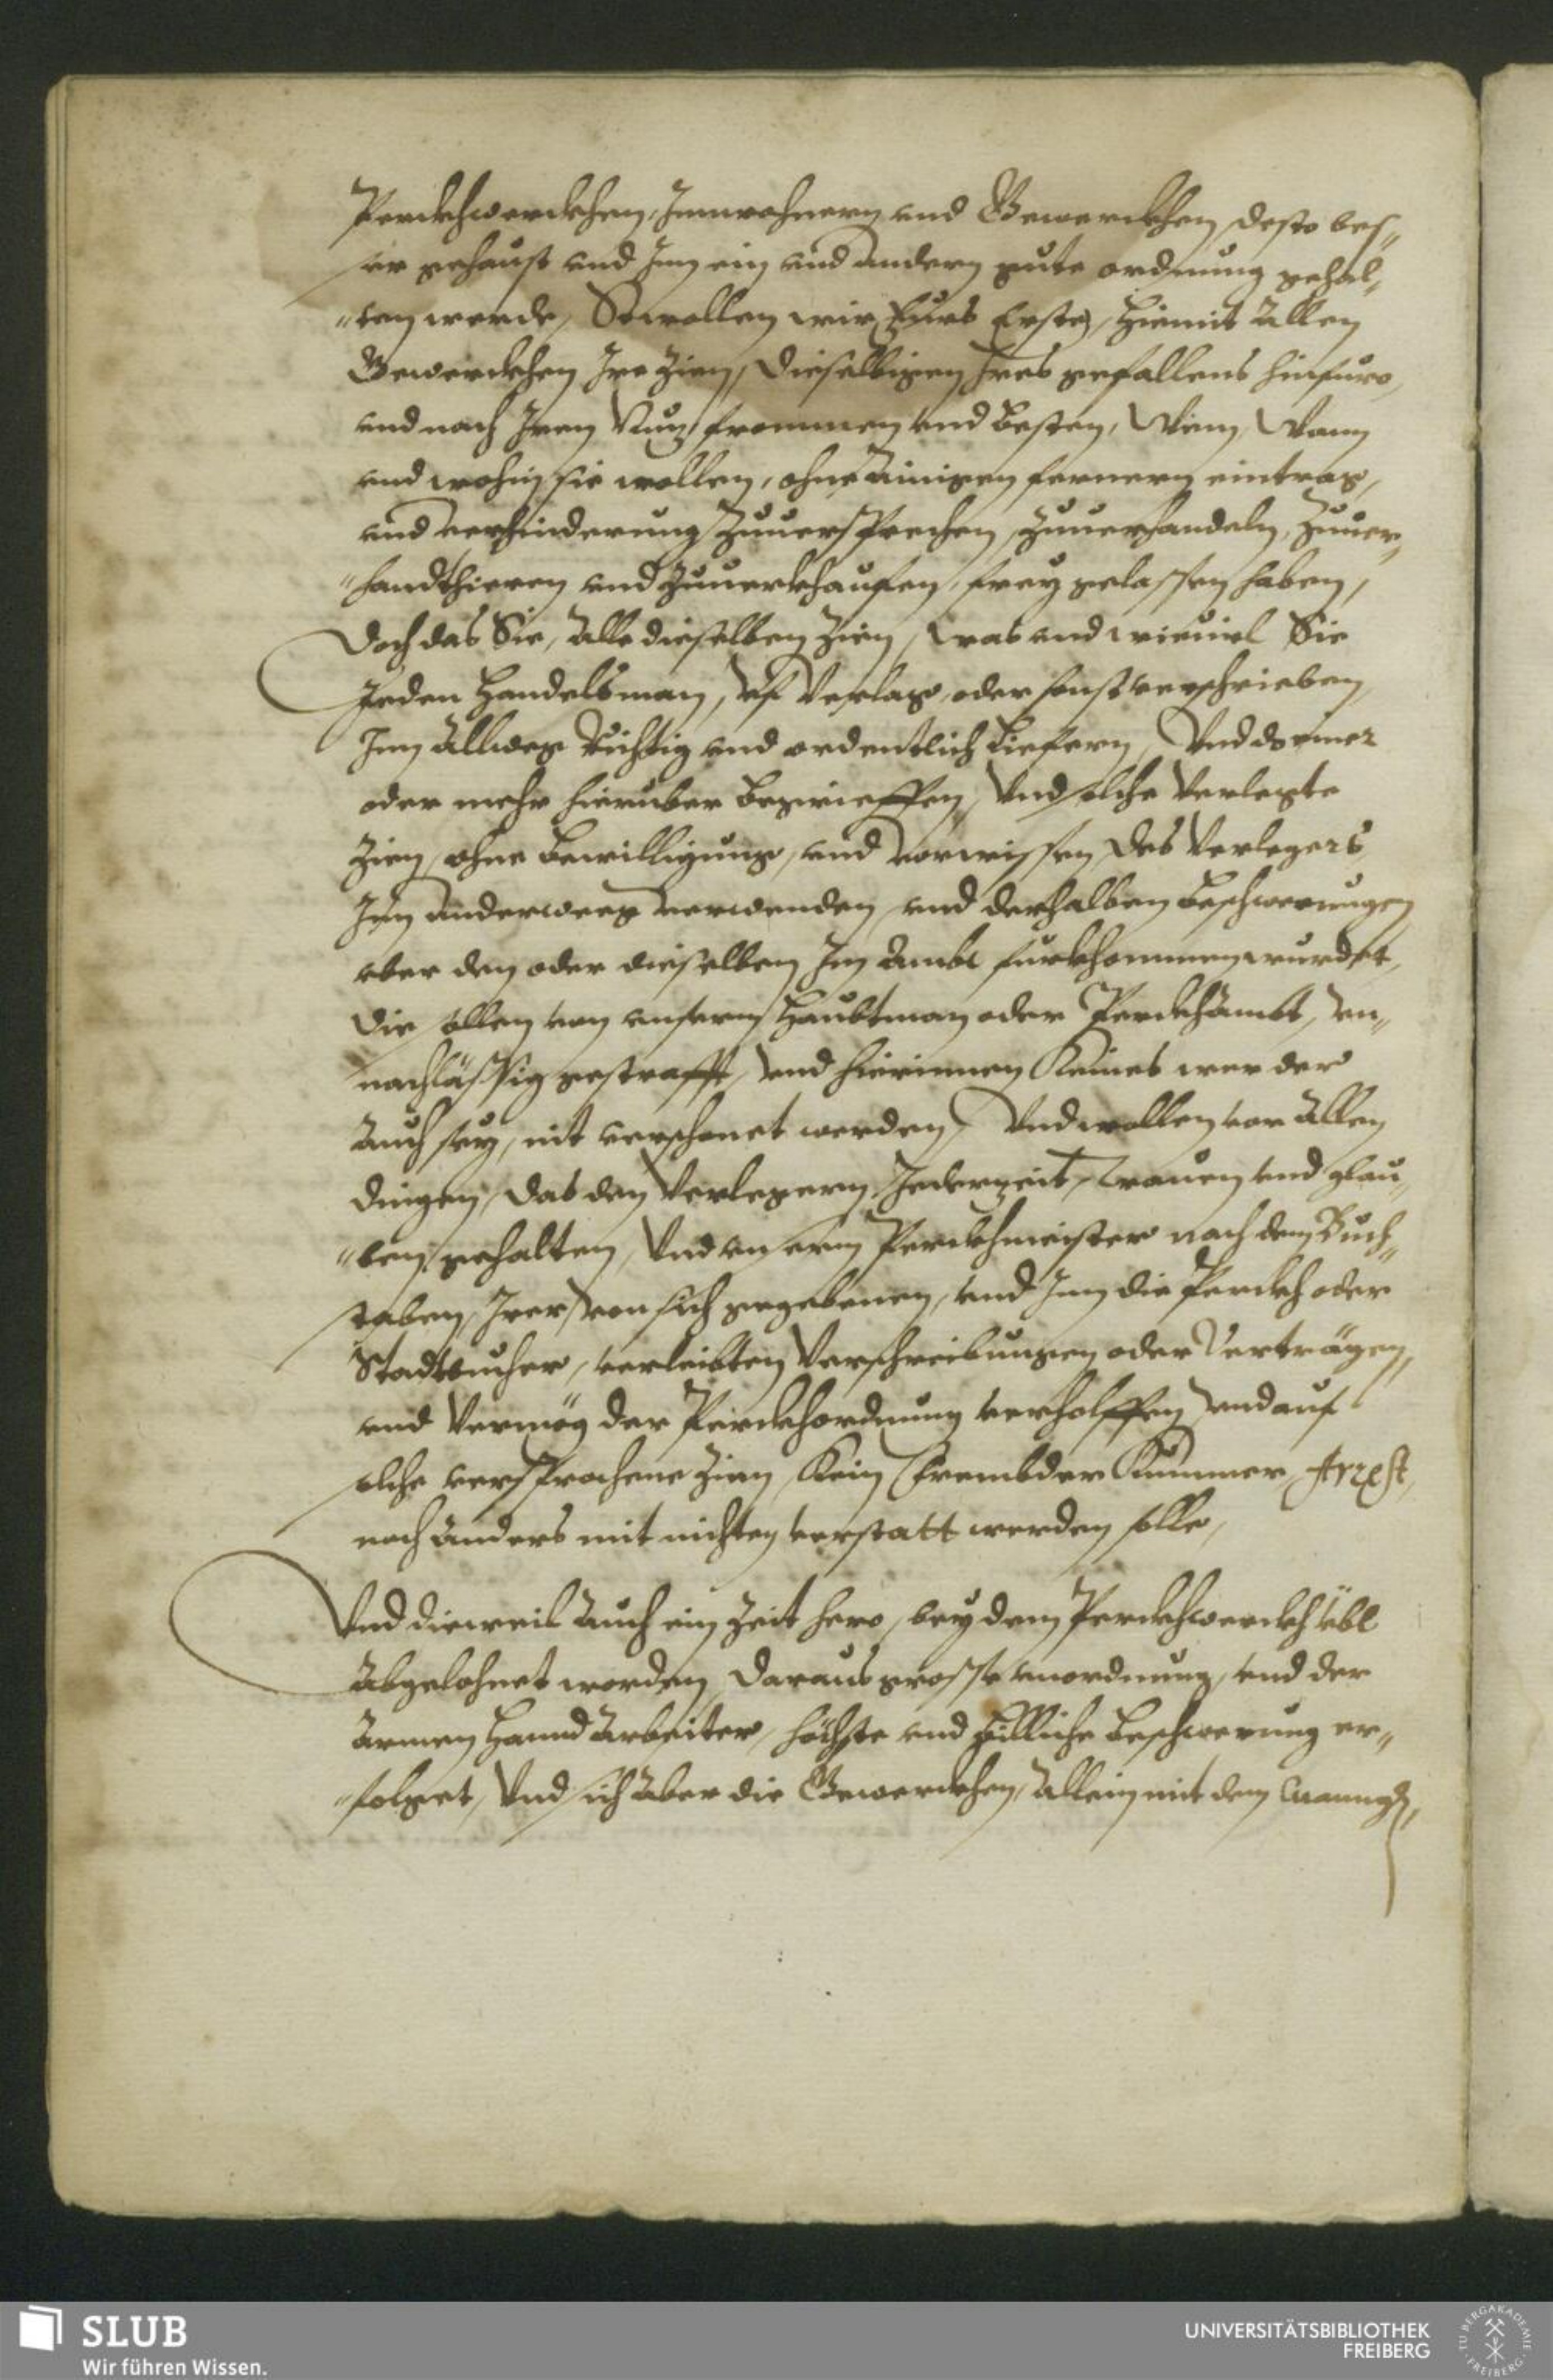 Perckhwerckhen, Innwohnern und Gewerckhen, desto bes„
ser gehaust und Inn ein und andern gute ordnung gehal„
„ten werde, So wollen wir Fürs Erste, Hiemit Allen
Gewerckhen Ire Zien, dieselbigen Ires gefallens hinfuro,
und nach Iren Nuz frommen und besten, Wem, Wann
und wohin sie wollen, ohne Ainigen fernern eintrag,
und verhinderung Zuuersprechen, Zuuerhandeln, Zuuer„
„handthieren und Zuuerkhaufen, frey gelassen haben,
Doch das Sie, Alle dieselben Zien, was und wieuiel Sie
Jeden Handelsman, uf Verlag, oder sonst verschrieben,
Inn Allweg Richtig und ordentlich Liefern, Und do einer
oder mehr hierüber begrieffen, Und solche Verlegte
Zien, ohne bewilligung, und vorwissen des Verlegers,
Inn anderweeg verwenden, und derhalben beschwerungen
uber den oder dieselben Im Ambt fürkhommen wurdet,
die sollen von unserm Haubtman oder Perckhambt, un„
nachläßig gestrafft, und hierinnen Keines wer der
Auch sey, nit verschonet werden, Und wollen vor Allen
dingen, das den Verlegern Jederzeit, trauen und glau„
„ben gehalten, Und unserm Perckhmeister nach dem Buch„
staben, Irer von sich gegebenen, und Inn die Perckh oder
Stadtbucher, verleibten Verschreibungen oder Verträgen,
und Vermög der Perckhordnung verholffen, und auf
solche versprochene Zien, Kein Frembder Kummer, Arrest,
noch Anders mit nichten verstatt werden solle,
Und dieweil Auch ein Zeit hero, bey dem Perckhwerckh übl
Abgelohnet worden, daraus grosse unordnung, und der
Armen Hannd Arbeiter, höchste und billiche beschwerung er„
„folget, Und sich Aber die Gewerckhen, Allein mit dem
SLUB
Wir führen Wissen.
UNIVERSITÄTSBIBLIOTHEK
FREIBERG
TU BERGAKADEMIE
FREIBERG